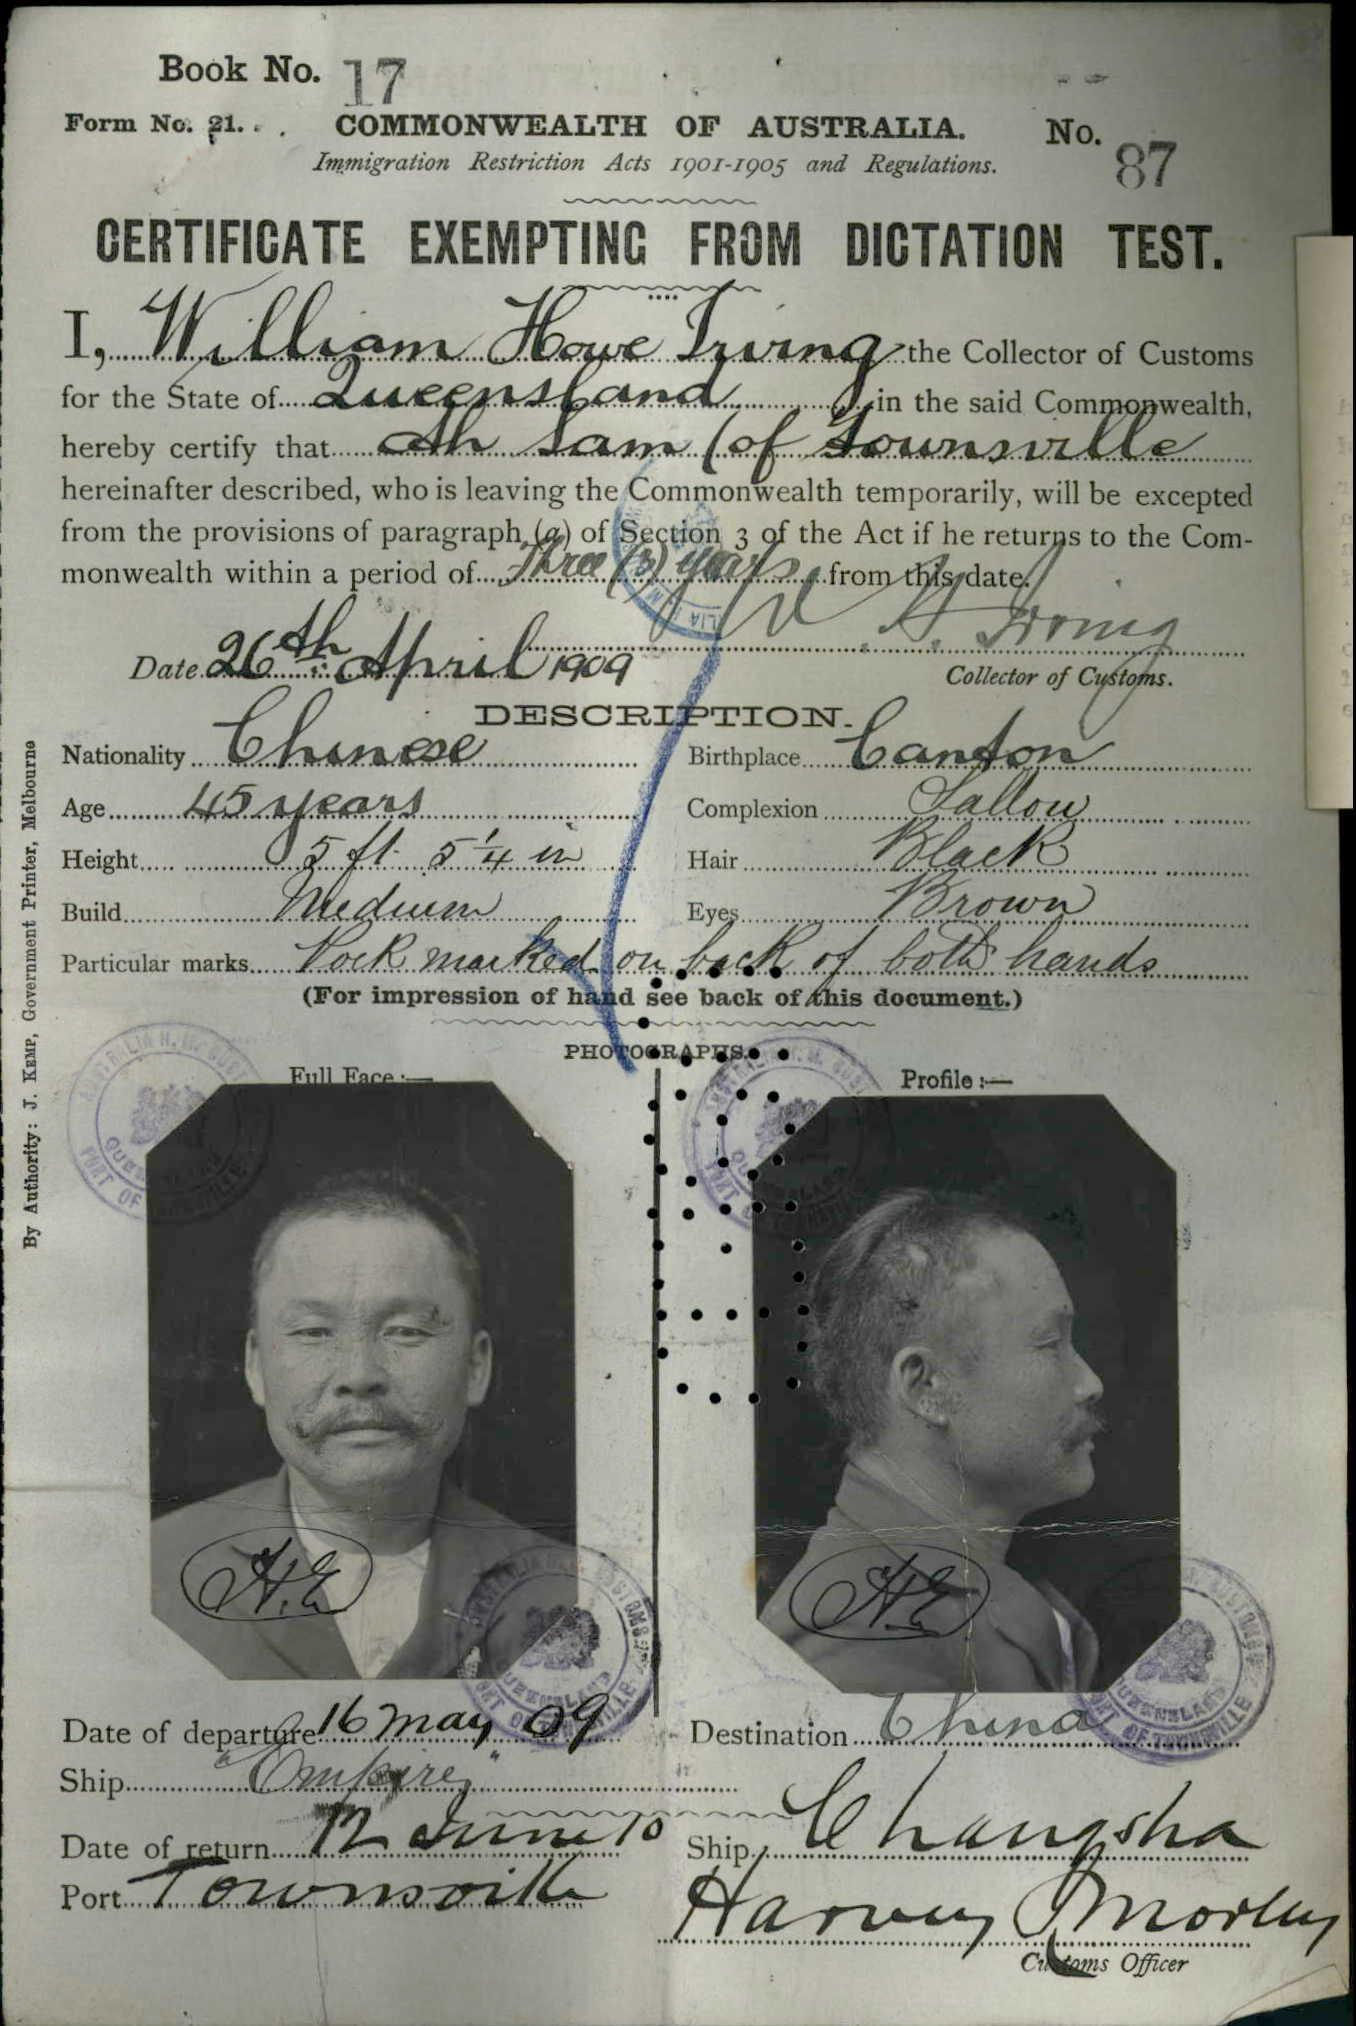 Book No. 17
Form No. 21. COMMONWEALTH OF AUSTRALIA. No. 87
Immigration Restriction Acts 1901-1905 and Regulations.
CERTIFICATE EXEMPTING FROM DICTATION TEST.
I, William Howe Irving the Collector of Customs
for the State of Queensland in the said Commonwealth,
hereby certify that Ah Sam (of Townsville
hereinafter described, who is leaving the Commonwealth temporarily, will be excepted
from the provisions of paragraph (a) of Section 3 of the Act if he returns to the Com-
monwealth within a period of Three (3) years from this date.
W. H. Irving
Date 26th April 1909 Collector of Customs.
DESCRIPTION.
Nationality Chinese Birthplace Canton
Age 45 years Complexion Sallow
Height 5 ft 5 1/4 in Hair Black
Build Medium Eyes Brown
Particular marks Pock marked on back of both hands
(For impression of hand see back of this document.)
PHOTOGRAPHS.
Full Face:— Profile:—
H.E H.E
Date of departure 16 May 09 Destination China
Ship "Empire"
Date of return 12 June 10 Ship Changsha
Port Townsville Harvey Morley
Customs Officer
By Authority: J. KEMP, Government Printer, Melbourne
AUSTRALIA H. M. CUSTOMS QUEENSLAND PORT OF TOWNSVILLE